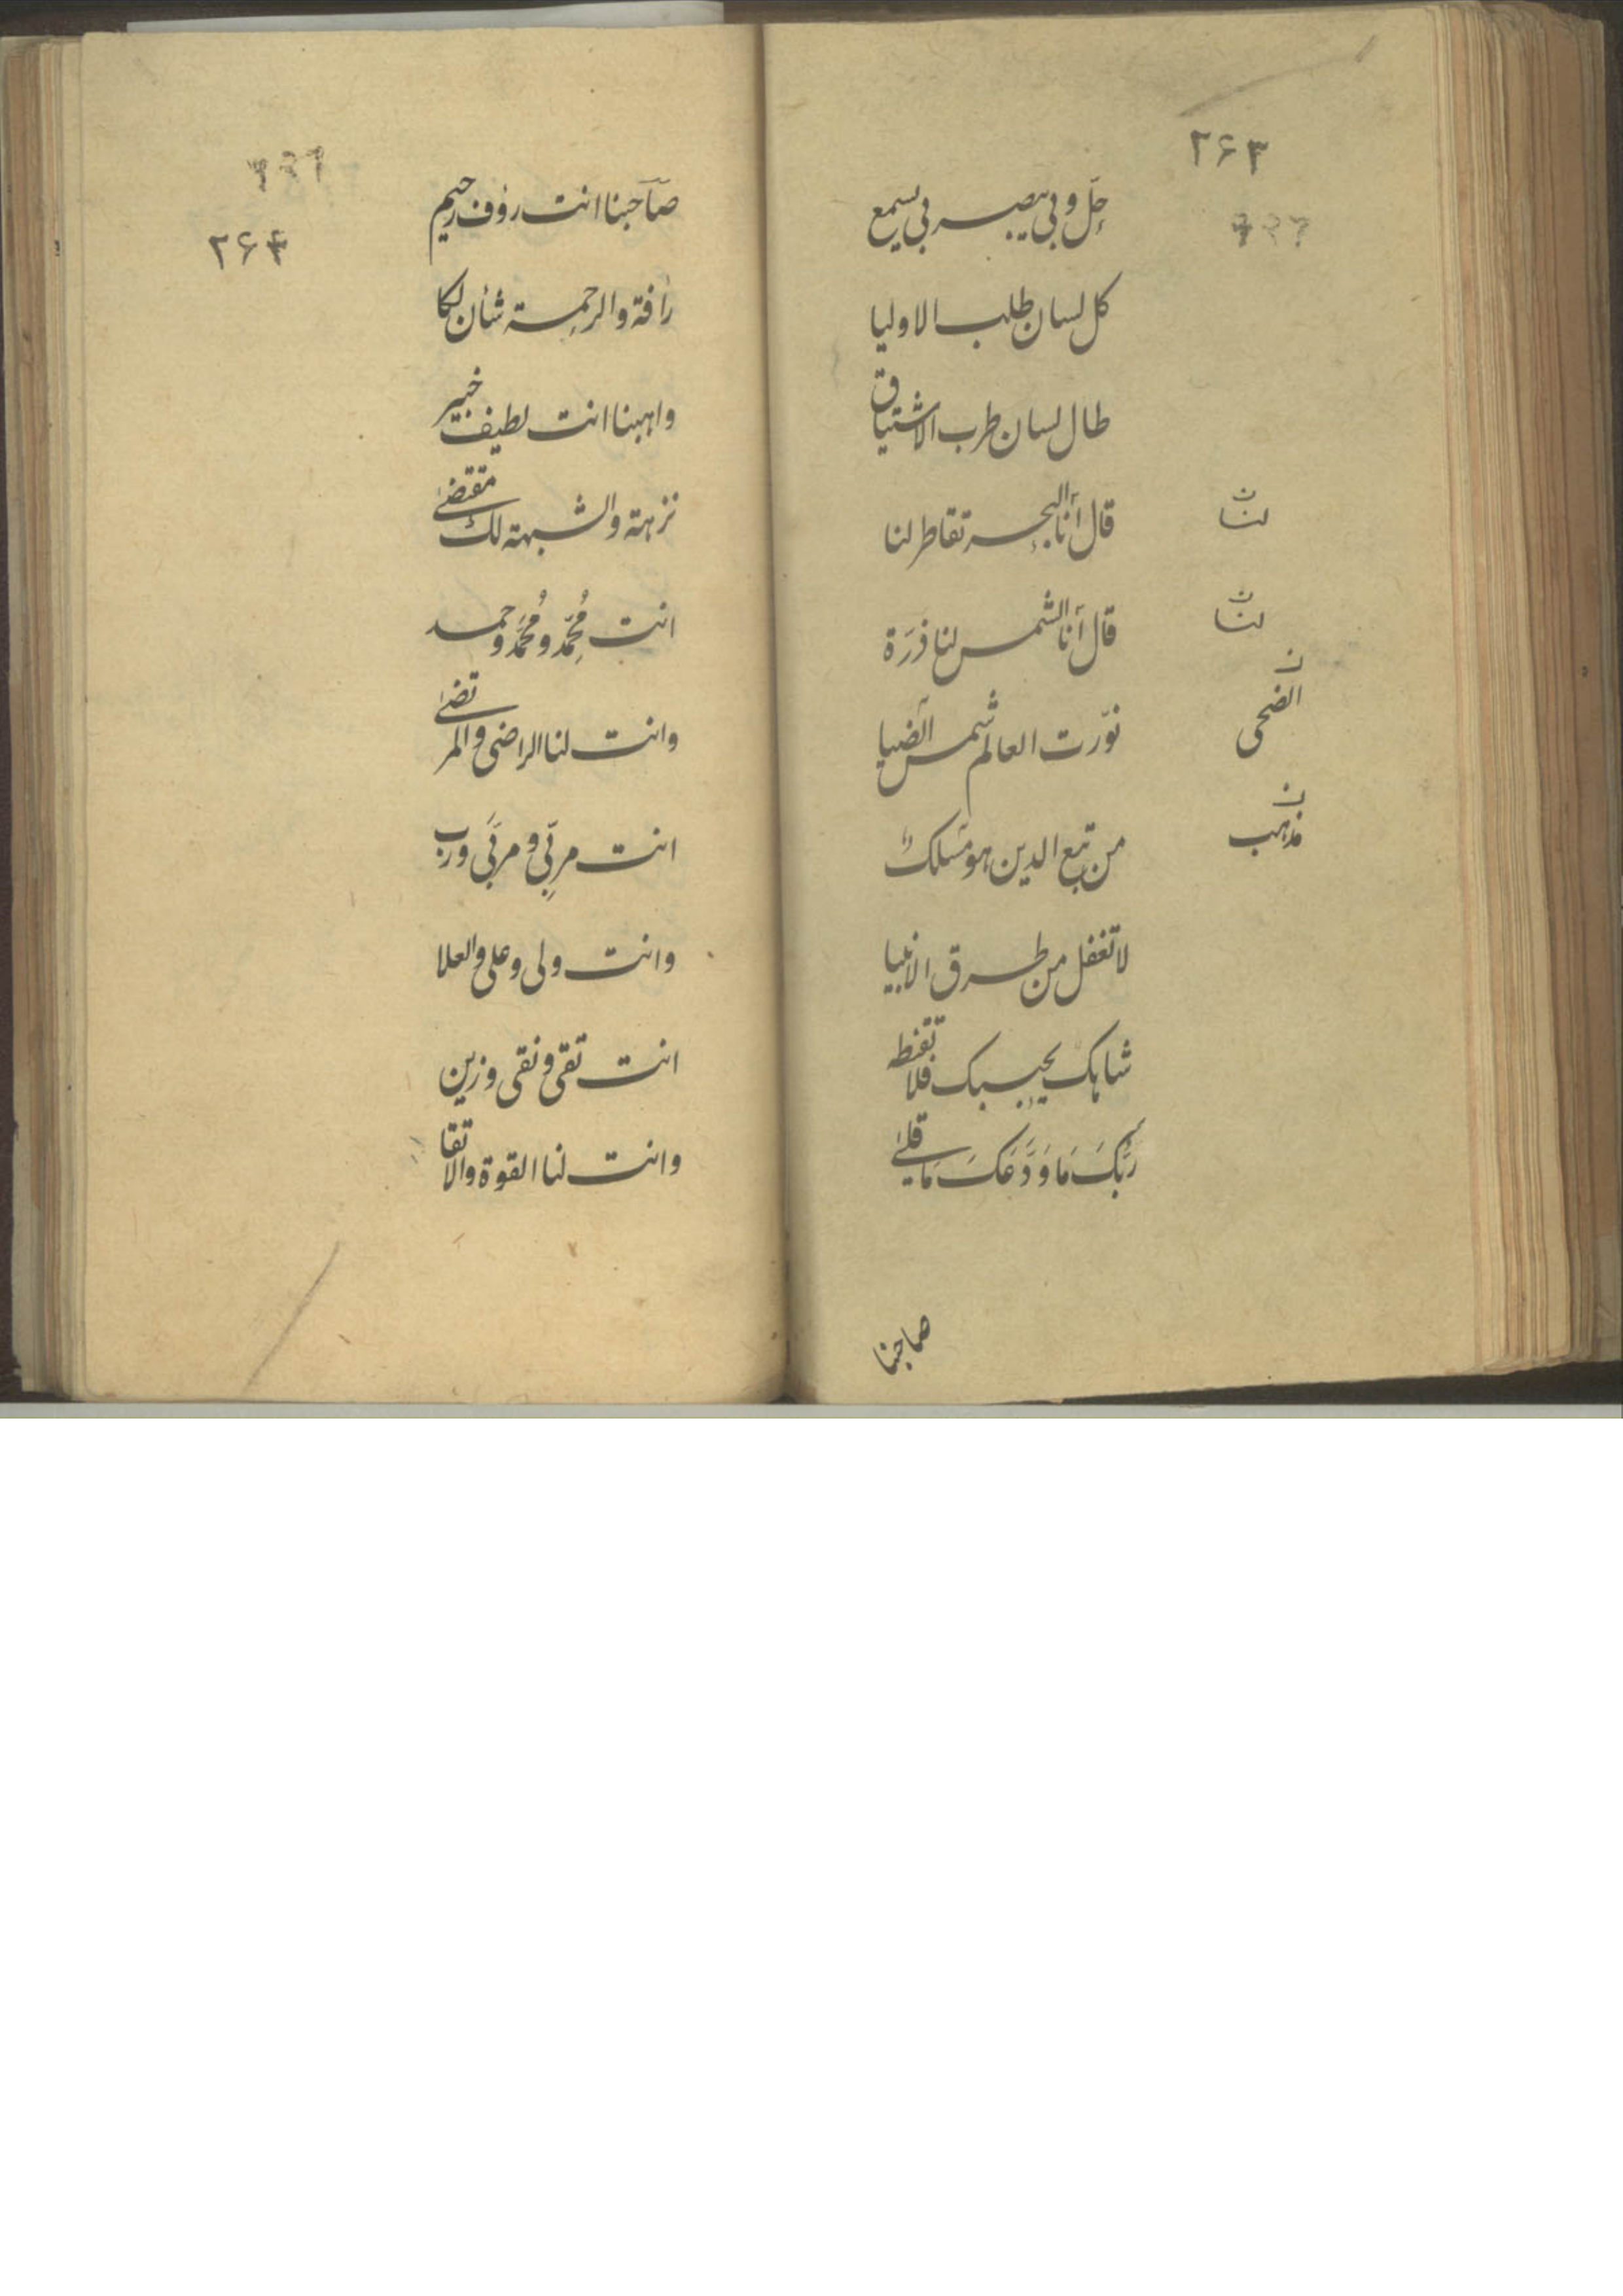 ۲۶۳
جل وبی یبصر بی یسمع
کل لسان طلب الاولیا
طال لسان طرب الاشتیاق
قال انا البحر تقاطر لنا
لنا ن
قال انا الشمس لنا ذرة
لنا ن
نوّرت العالم شمس الضیا
الضحی ن
من تبع الدین هو مسلک
مذهب ن
لا تغفل من طرق الانبیا
شاهک یحبک فلا تقنط
رَبُّکَ مَا وَدَّعَکَ مَا قلیٰ
صاحبنا
۲۶۴
صاحبنا انت رؤف رحیم
رأفة والرحمة شأن لکا
واهبنا انت لطیف خبیر
نزهة والشبهة لک مقتضیٰ
انت مُحَمِّد و مُحَمَّد و حمد
وانت لنا الراضی والمرتضیٰ
انت مربِّی و مربَّی و رب
وانت ولی و علی والعلا
انت تقی و نقی و زین
وانت لنا القوة والاتقا